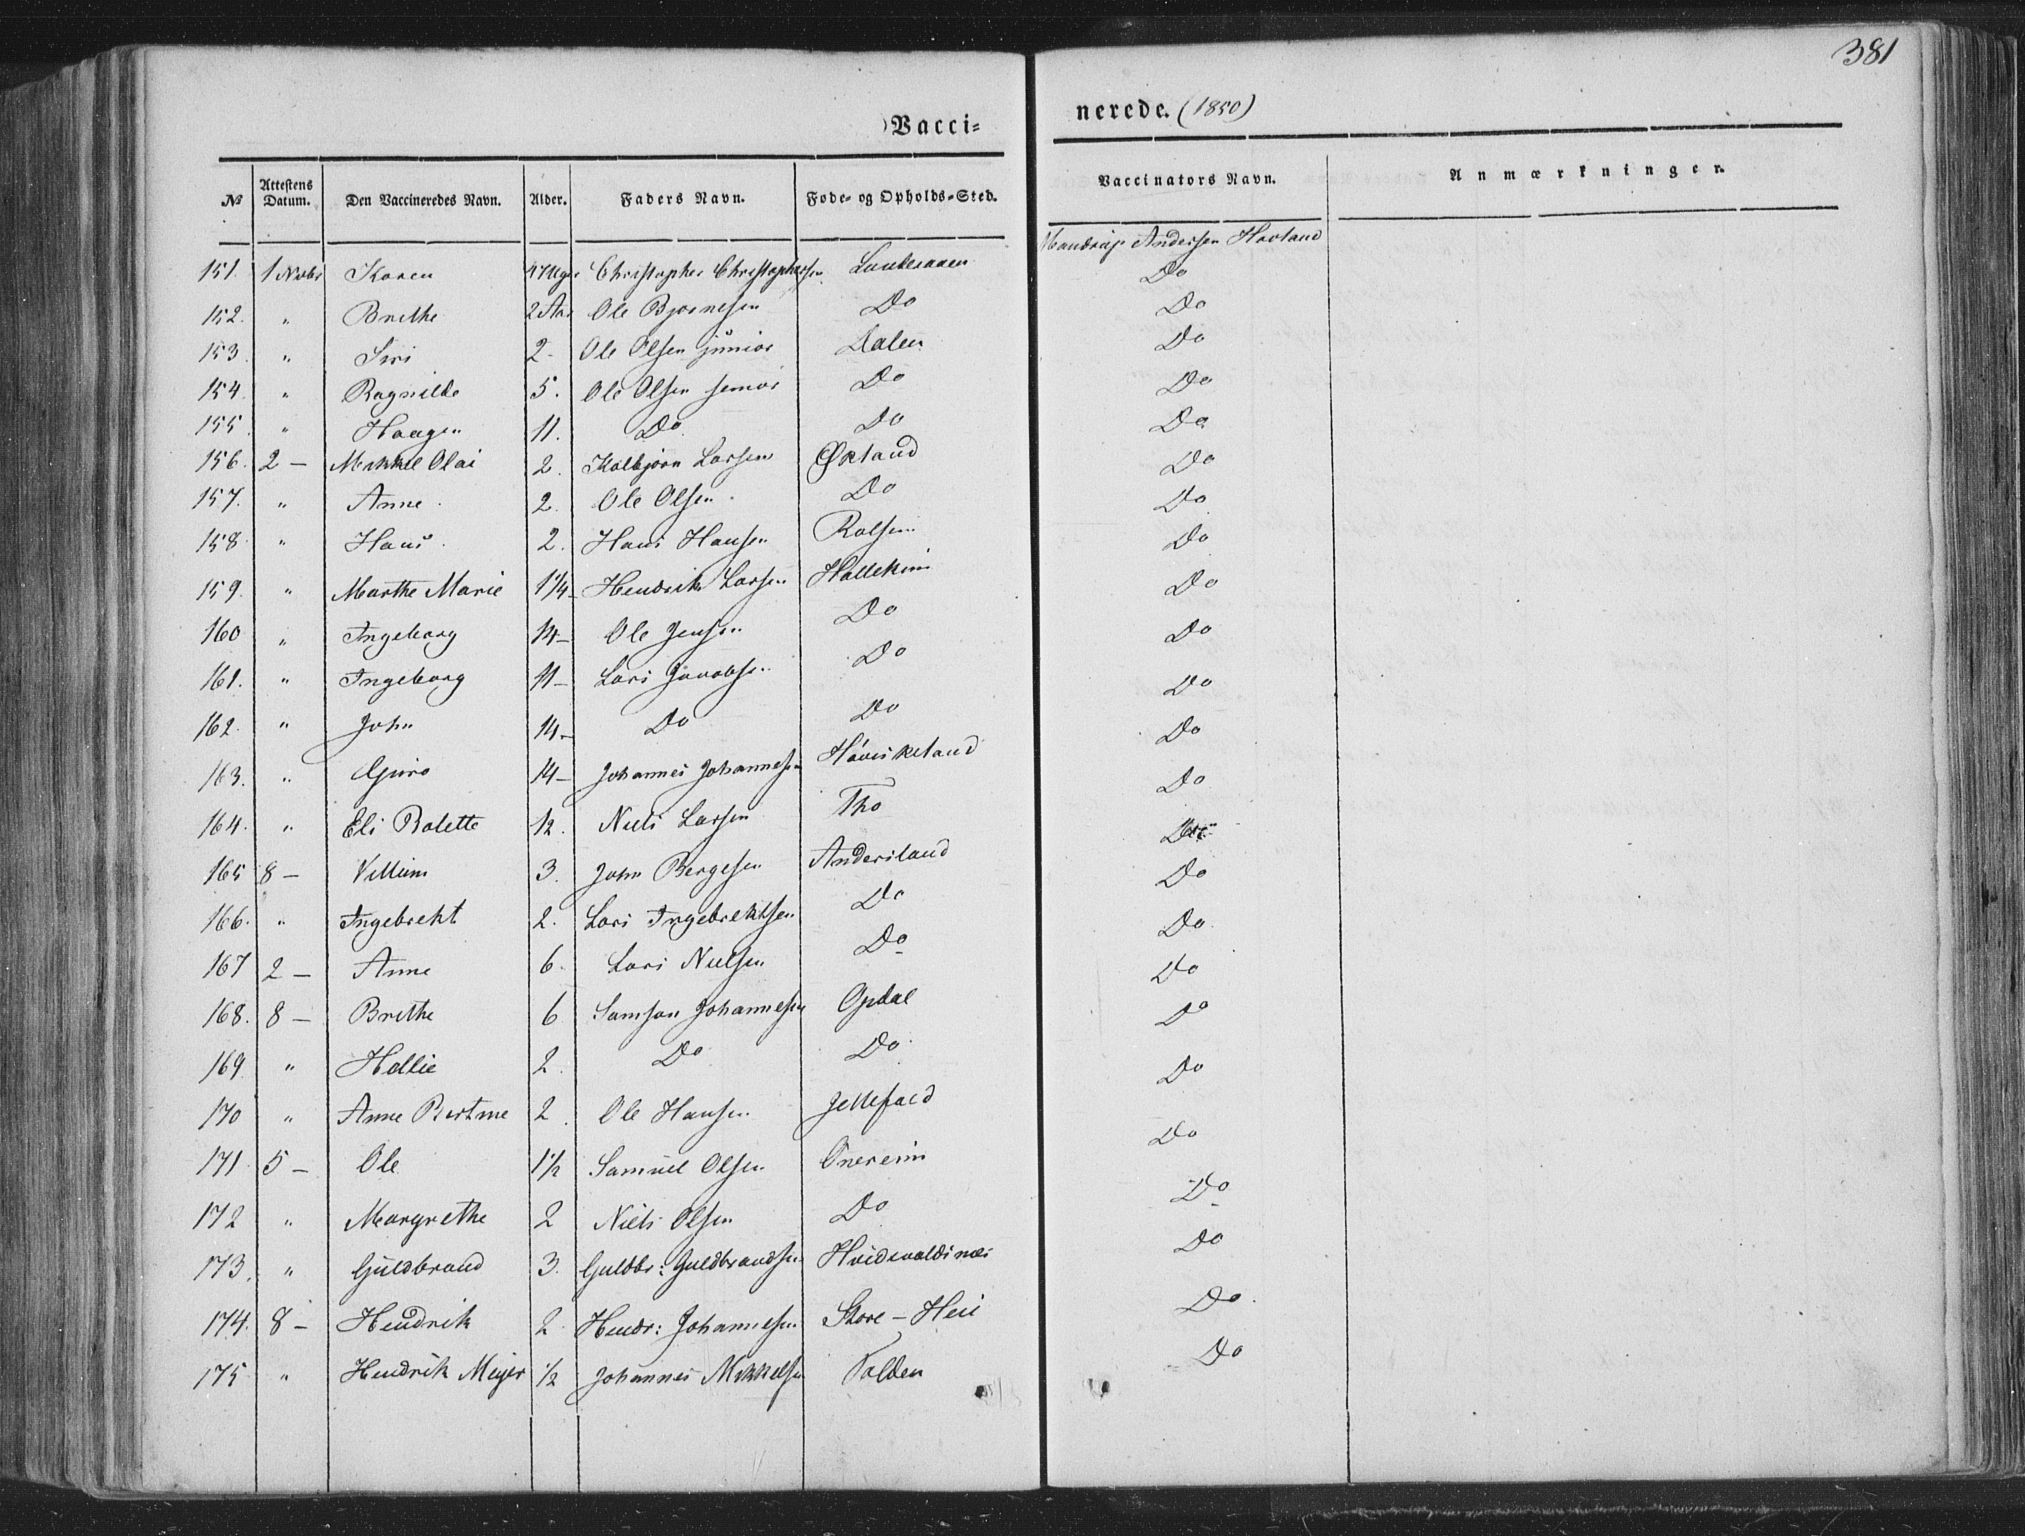 381
Vacci= nerede. (1850)
№ Attestens Datum. Den Vaccineredes Navn. Alder. Faders Navn. Føde- og Opholds-Sted. Vaccinators Navn. Anmærkninger.
Andersen Hovland
151. 1 Novbr Karen Christopher Christophersen Do
152. " Brithe 2 Aar Ole Bjørnesen Do Do
153 " Siri 2- Ole Olsen junior Dalen Do
154 " Ragnilde 5. Ole Olsen senior Do Do
155 " Haagen 11. Do Do Do
156. 2 - Mikkel Olai 2. Kolbjørn Larsen Øxland Do
157. " Anne 2. Ole Olsen Do Do
158 " Hans 2. Hans Hansen Do
159. " Marthe Marie 1 1/4 Hendrik Larsen Do
160 " Ingeborg 14- Ole Jensen Do Do
161. " Ingeborg 11- Lars Jacobsen Do Do
162. " John 14- Do Do Do
163. " Guro 14- Johannes Johannesen Do
164. " Eli Bolette 12. Niels Larsen Tho Do
165 8 - Villum 3. John Bergesen Andersland Do
166. " Ingebrekt 2. Lars Ingebrektsen Do Do
167 2 - Anne 6. Lars Nielsen Do Do
168. 8 - Brithe 6 Samson Johannesen Opdal Do
169 " Hellie 2. Do Do Do
170 " Anne Bertine 2. Ole Hansen Do
171 5 - Ole 1 1/2 Samuel Olsen Onereim Do
172 " Margrethe 2 Niels Olsen Do Do
173. " Guldbrand 3. Guldbr: Guldbrandsen Do
174. 8 - Hendrik 2 Hendr: Johannesen Store - Do
175 " Hendrik Meyer 1/2 Johannes Mikkelsen Do